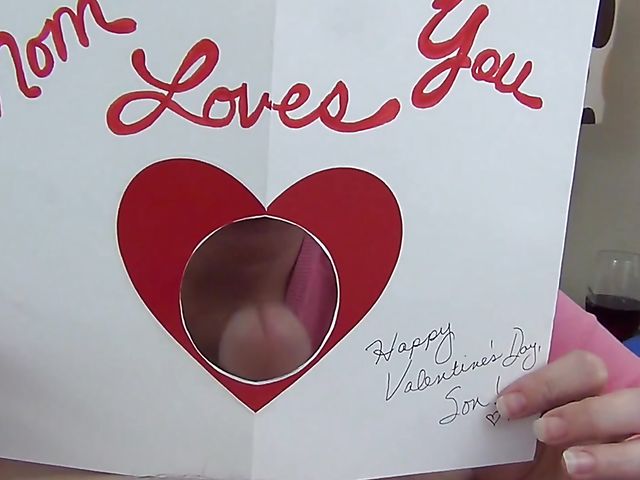 Mom
Loves You
Happy
Valentine's Day,
Son!